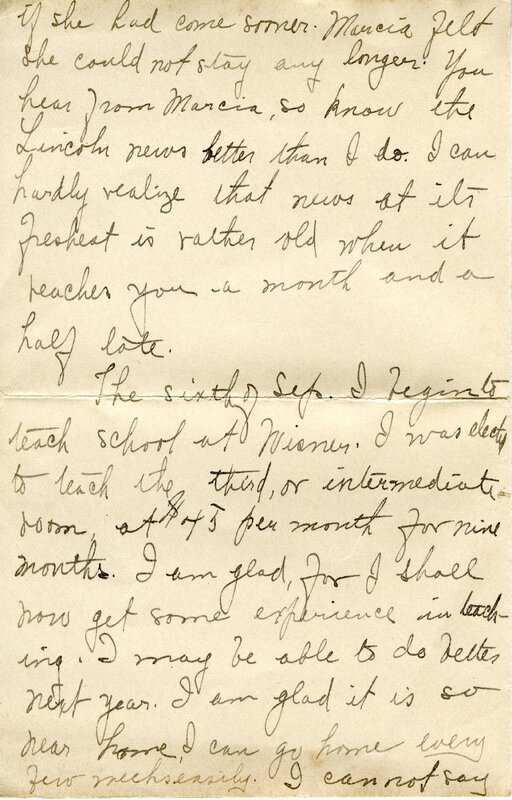 if she had come sooner. Marcia felt
she could not stay any longer. You
hear from Marcia, so know the
Lincoln news better than I do. I can
hardly realize that news at its
freshest is rather old when it
reaches you a month and a
half late.
The sixth of Sep. I begin to
teach school at Wisner. I was elected
to teach the third, or intermediate
room, at $45 per month for nine
months. I am glad, for I shall
now get some experience in teach-
ing. I may be able to do better
next year. I am glad it is so
near home, I can go home every
few weeks easily. I can not say